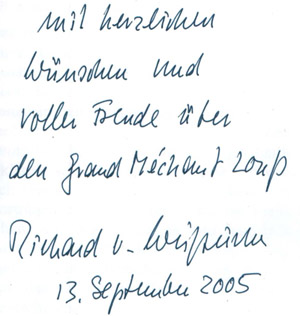 mit herzlichen
Wünschen und
voller Freude über
den Grand Méchant Loup
Richard v. Weizsäcker
13. September 2005